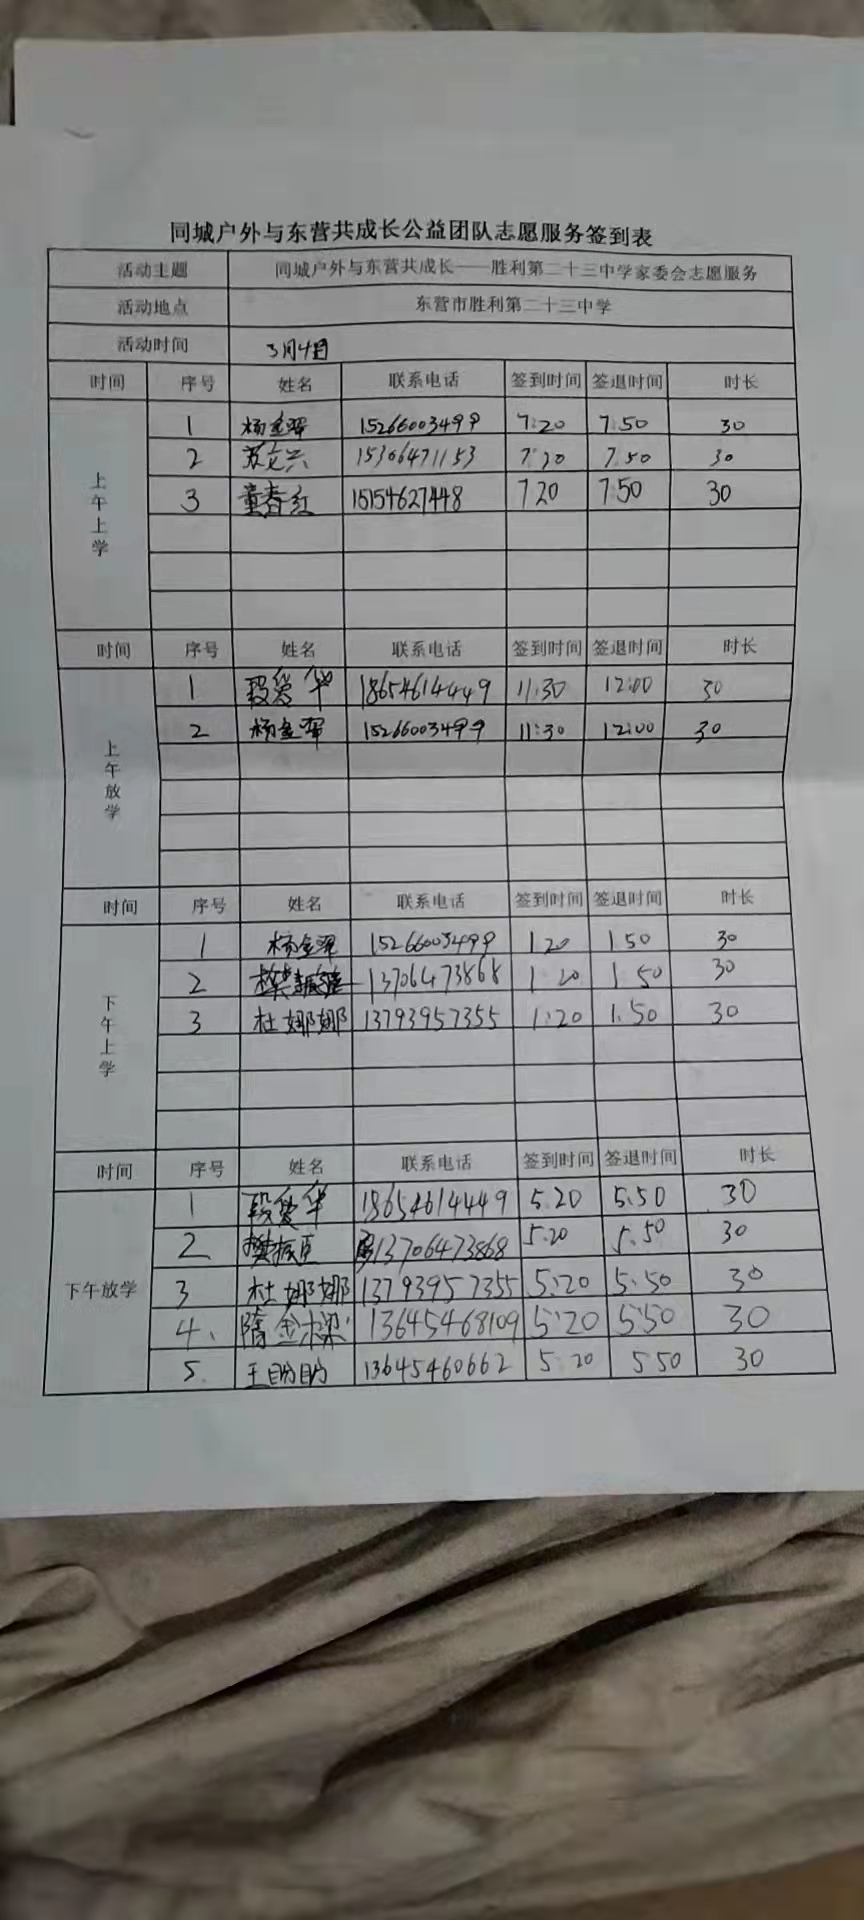 同城户外与东营共成长公益团队志愿服务签到表
活动主题 同城户外与东营共成长——胜利第二十三中学家委会志愿服务
活动地点 东营市胜利第二十三中学
活动时间 3月4日
时间 序号 姓名 联系电话 签到时间 签退时间 时长
上午上学
1 杨金翠 15266003499 7:20 7:50 30
2 15306471153 7:20 7:50 30
3 童春红 15154627448 7 20 7:50 30
时间 序号 姓名 联系电话 签到时间 签退时间 时长
上午放学
1 段爱华 18654614449 11:30 12:00 30
2 杨金翠 15266003499 11:30 12:00 30
时间 序号 姓名 联系电话 签到时间 签退时间 时长
下午上学
1 杨金翠 15266003499 1 20 1 50 30
2 13706473868 1:20 1 50 30
3 杜娜娜 13793957355 1:20 1.50 30
时间 序号 姓名 联系电话 签到时间 签退时间 时长
下午放学
1 段爱华 18654614449 5.20 5.50 30
2 樊振臣 13706473868 5:20 5.50 30
3 杜娜娜 13793957355 5:20 5.50 30
4、 隋金梁 13645468109 5:20 5:50 30
5. 王盼盼 13645460662 5:20 5 50 30